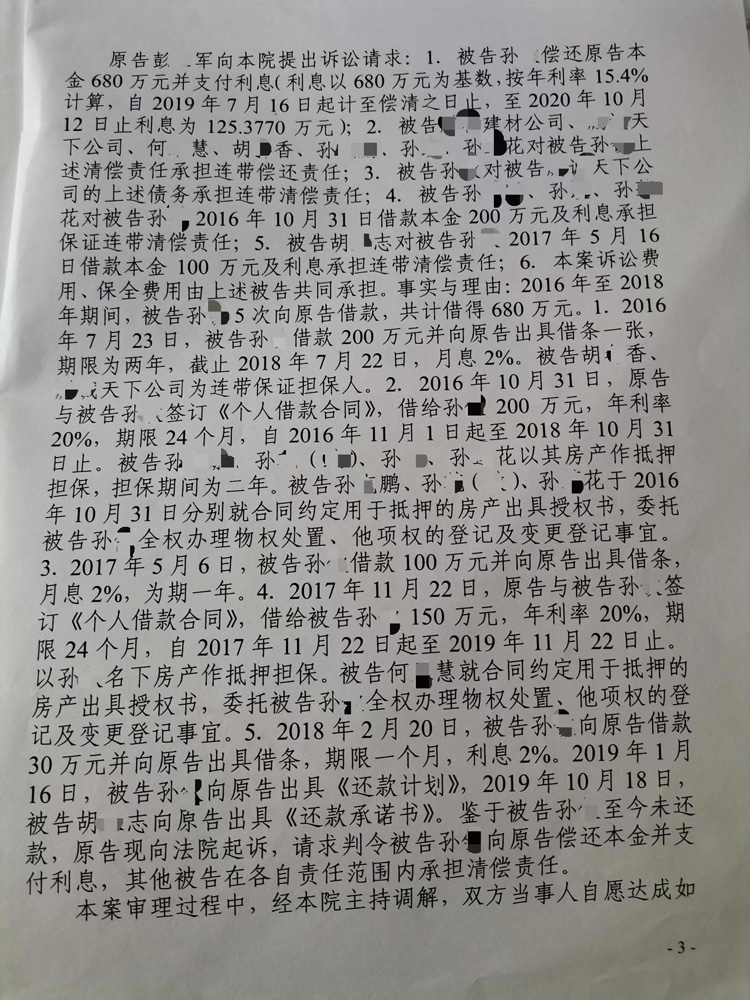 原告彭 军向本院提出诉讼请求：1．被告孙 偿还原告本
金 680 万元并支付利息（利息以 680 万元为基数，按年利率 15.4%
计算，自 2019 年 7 月 16 日起计至偿清之日止，至 2020 年 10 月
12 日止利息为 125.3770 万元）；2．被告 建材公司、 天
下公司、何 慧、胡 香、孙 、孙 花对被告孙 上
述清偿责任承担连带偿还责任；3．被告孙 对被告 天下公
司的上述债务承担连带清偿责任；4．被告孙 、孙 、孙
花对被告孙 2016 年 10 月 31 日借款本金 200 万元及利息承担
保证连带清偿责任；5．被告胡 志对被告孙 2017 年 5 月 16
日借款本金 100 万元及利息承担连带清偿责任；6．本案诉讼费
用、保全费用由上述被告共同承担。事实与理由：2016 年至 2018
年期间，被告孙 5 次向原告借款，共计借得 680 万元。1．2016
年 7 月 23 日，被告孙 借款 200 万元并向原告出具借条一张，
期限为两年，截止 2018 年 7 月 22 日，月息 2%。被告胡 香、
天下公司为连带保证担保人。2．2016 年 10 月 31 日，原告
与被告孙 签订《个人借款合同》，借给孙 200 万元，年利率
20%，期限 24 个月，自 2016 年 11 月 1 日起至 2018 年 10 月 31
日止。被告孙 、孙 （ ）、孙 、孙 花以其房产作抵押
担保，担保期间为二年。被告孙 鹏、孙 （ ）、孙 花于 2016
年 10 月 31 日分别就合同约定用于抵押的房产出具授权书，委托
被告孙 全权办理物权处置、他项权的登记及变更登记事宜。
3．2017 年 5 月 6 日，被告孙 借款 100 万元并向原告出具借条，
月息 2%，为期一年。4．2017 年 11 月 22 日，原告与被告孙 签
订《个人借款合同》，借给被告孙 150 万元，年利率 20%，期
限 24 个月，自 2017 年 11 月 22 日起至 2019 年 11 月 22 日止。
以孙 名下房产作抵押担保。被告何 慧就合同约定用于抵押的
房产出具授权书，委托被告孙 全权办理物权处置、他项权的登
记及变更登记事宜。5．2018 年 2 月 20 日，被告孙 向原告借款
30 万元并向原告出具借条，期限一个月，利息 2%。2019 年 1 月
16 日，被告孙 向原告出具《还款计划》，2019 年 10 月 18 日，
被告胡 志向原告出具《还款承诺书》。鉴于被告孙 至今未还
款，原告现向法院起诉，请求判令被告孙 向原告偿还本金并支
付利息，其他被告在各自责任范围内承担清偿责任。
本案审理过程中，经本院主持调解，双方当事人自愿达成如
- 3 -